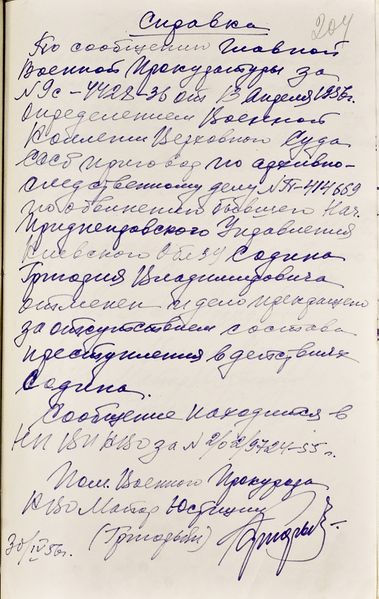 204
Справка
По сообщению Главной
Военной Прокуратуры за
№ 9с-4428-36 от 13 Апреля 1956 г.
определением Военной
Коллегии Верховного Суда
СССР приговор по архивно-
следственному делу № П-414669
по обвинению бывшего Нач.
Управления
Киевского Садина
Григория Владимировича
отменен и дело прекращено
за отсутствием состава
преступления в действиях
Садина.
Сообщение находится в
НП ВП КВО за №
Пом. Военного Прокурора
КВО Майор Юстиции
30/IV 56 г. (Григорьев)